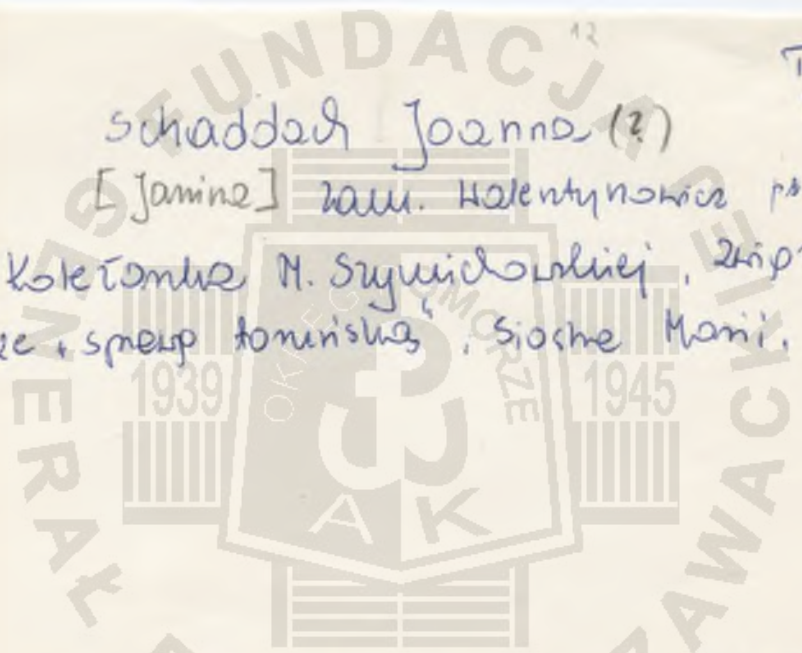 12
T
Schaddach Joanna (?)
[Janina] zam. Walentynowicz ps
Koleżanka M. Szymichowskiej, zwią
ze „sprawą toruńską”. Siostra Marii.
FUNDACJA GENERAŁ ZAWACKIE
OKRĘG POMORZE
1939 1945
A K